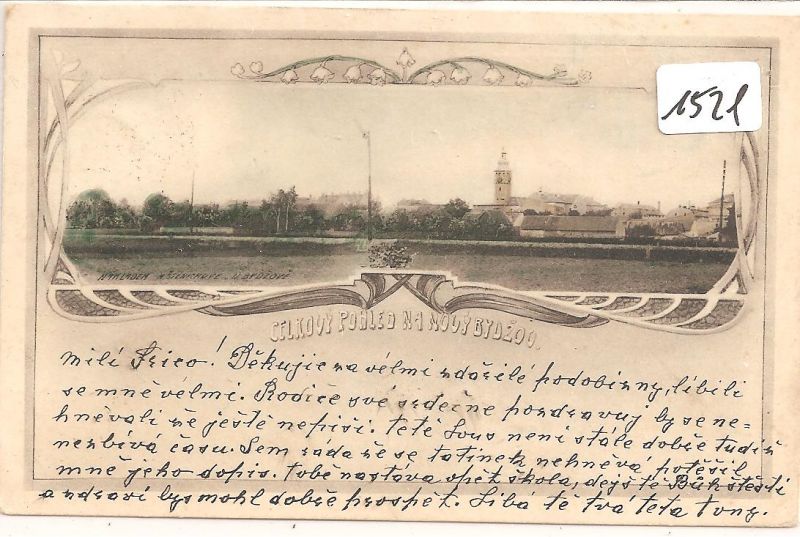 1521
NÁKLADEM . N. BYDŽOVĚ
CELKOVÝ POHLED NA NOVÝ BYDŽOV.
Milí Frico! Děkuji za velmi zdařilé podobizny, líbili
se mně vélmi. Rodiče své srdečně pozdravuj by se ne=
hněvali že ještě nepíši. Tetě není stále dobře tudíž
nezbívá času. Sem ráda že se tatínek nehněvá potěšil
mně jeho dopis. Tobě nastáva opět škola, dejž tě Bůh štěstí
a zdraví bys mohl dobře prospět. Líbá tě tvá teta